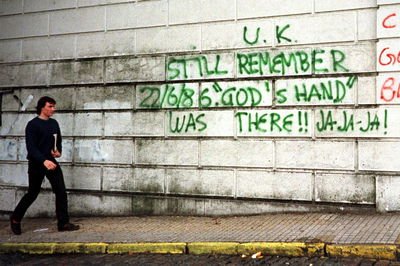 U.K.
STILL REMEMBER
21/6/86. "GOD'S HAND"
WAS THERE!! JA-JA-JA!